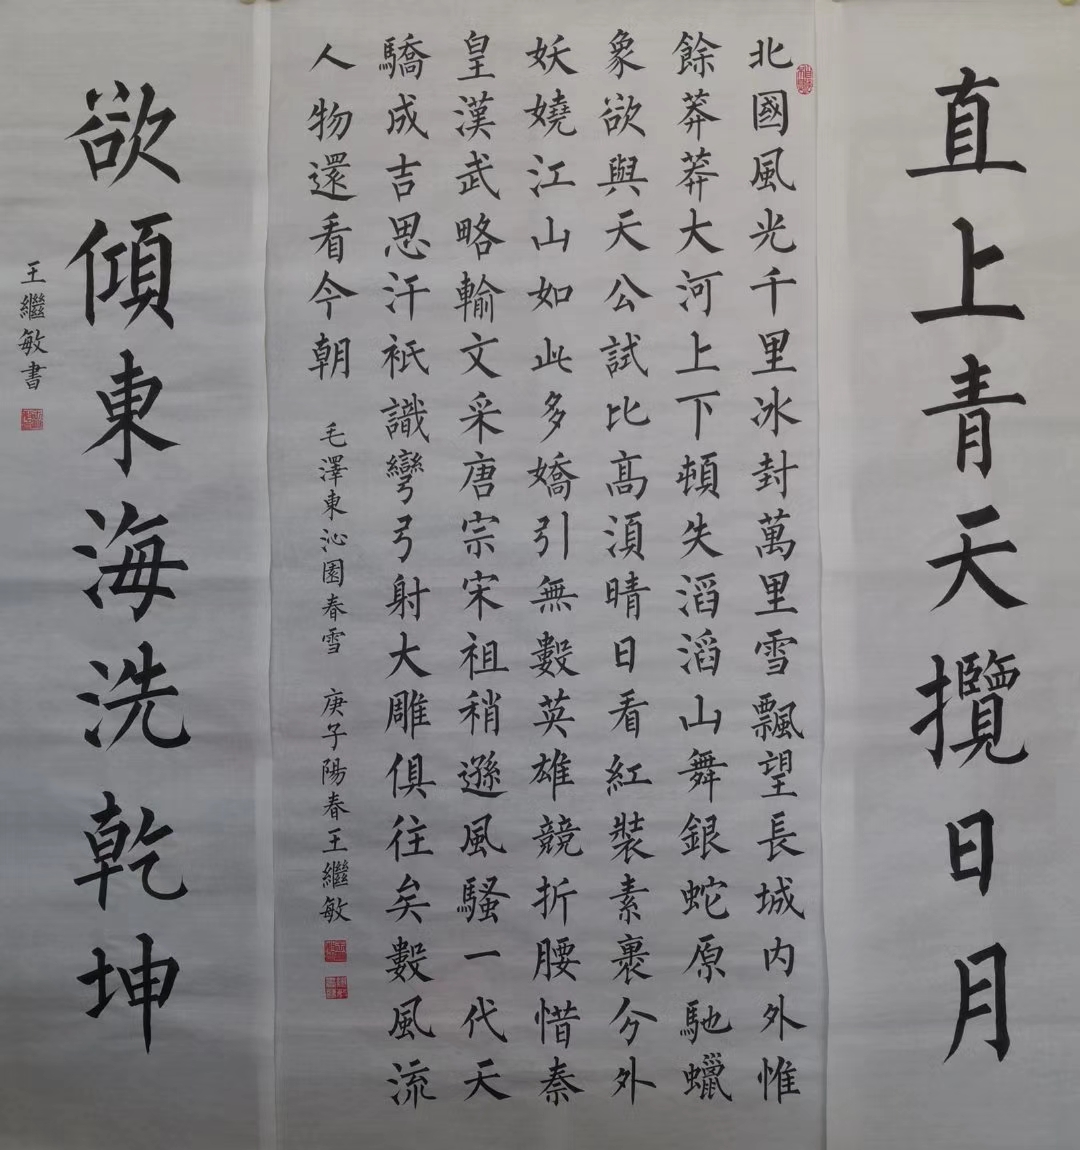 直上青天攬日月
北國風光千里冰封萬里雪飄望長城内外惟
餘莽莽大河上下頓失滔滔山舞銀蛇原馳蠟
象欲與天公試比髙湏晴日看紅裝素裹分外
妖嬈江山如此多嬌引無數英雄競折腰惜秦
皇漢武略輸文采唐宗宋祖稍遜風騷一代天
驕成吉思汗祇識彎弓射大雕俱往矣數風流
人物還看今朝 毛澤東沁園春雪 庚子陽春王繼敏
欲傾東海洗乾坤
王繼敏書